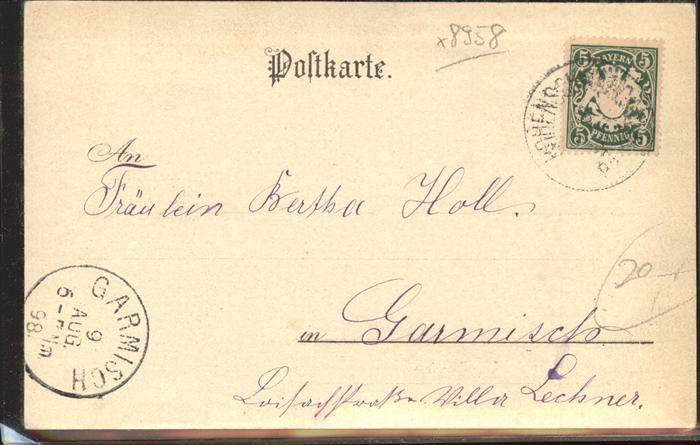 x8958
Postkarte.
BAYERN
5 5
5 5
PFENNIG
HOHENSCH
An
Fräulein Bertha Holl.
20-
GARMISCH
9
AUG.
6-7 Nm.
98.
in Garmisch
Loisachstraße Villa Lechner.